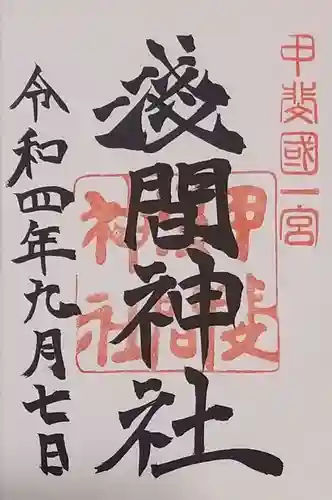 甲斐國一宮
淺間神社
甲斐
淺間
神社
令和四年九月七日